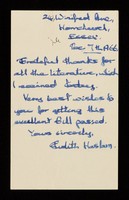 24, Winifred Ave,
Hornchurch,
Essex.
Dec 7th 1966
Grateful thanks for
all the literature, which
I received today.
Very best wishes to
you for getting this
excellent Bill passed.
Yours sincerely,
Edith